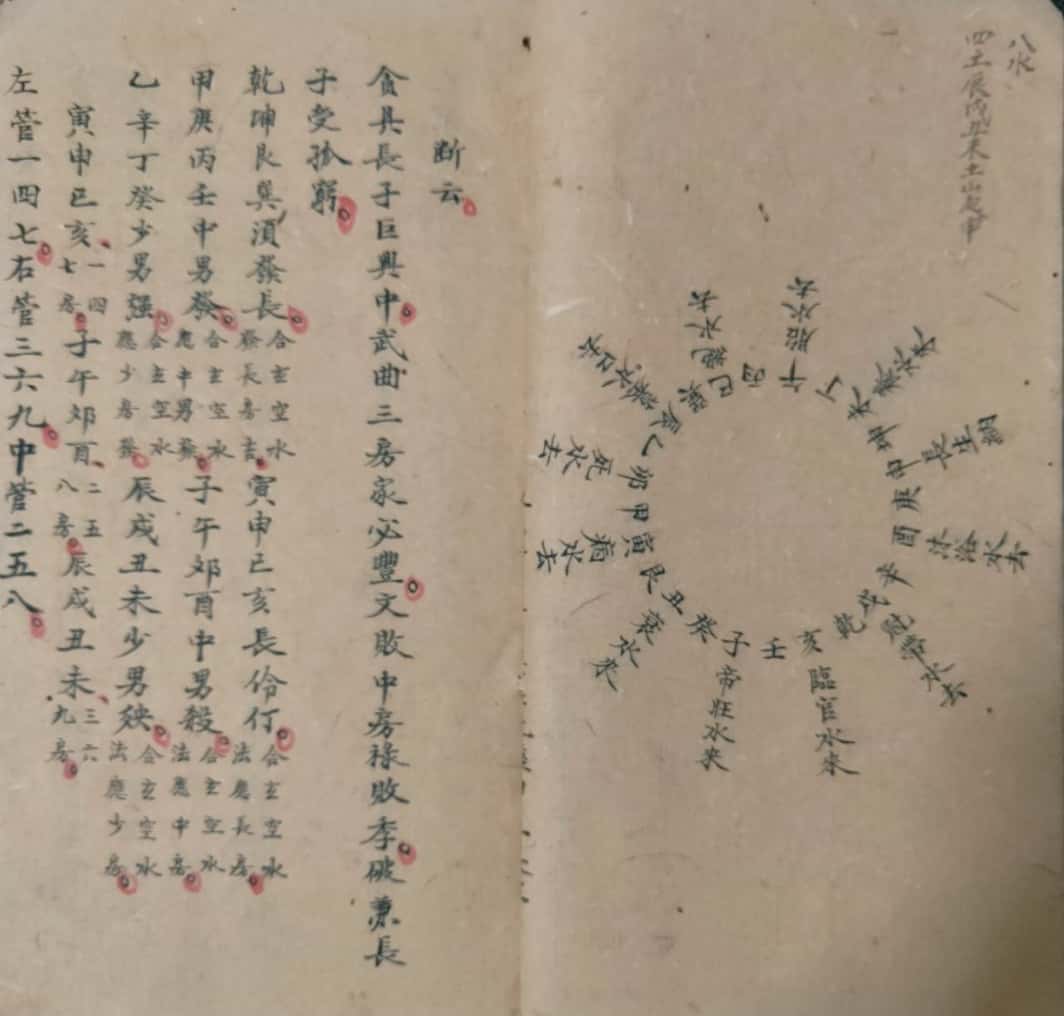 八水
四土辰戌丑未土山起申
子
癸
丑
艮
寅
甲
卯
乙
辰
巽
巳
丙
午
丁
未
坤
申
庚
酉
辛
戌
乾
亥
壬
帝旺水來
衰水來
病水去
死水去
絕水去
胎水去
長生
沐浴水來
冠帶水去
臨官水來
断云
貪具長子巨興中武曲三房家必豐文敗中房祿敗季破兼長
子受孤窮
乾坤艮巽湏發長合玄空水發長房吉寅申巳亥長伶仃合玄空水法應長房
甲庚丙壬中男發合玄空水應中男發子午郊酉中男殺合玄空水法應中房
乙辛丁癸少男强合玄空水應少房發辰戌丑未少男殃合玄空水法應少房
寅申巳亥一四七房子午郊酉二五八房辰戌丑未三六九房
左管一四七右管三六九中管二五八